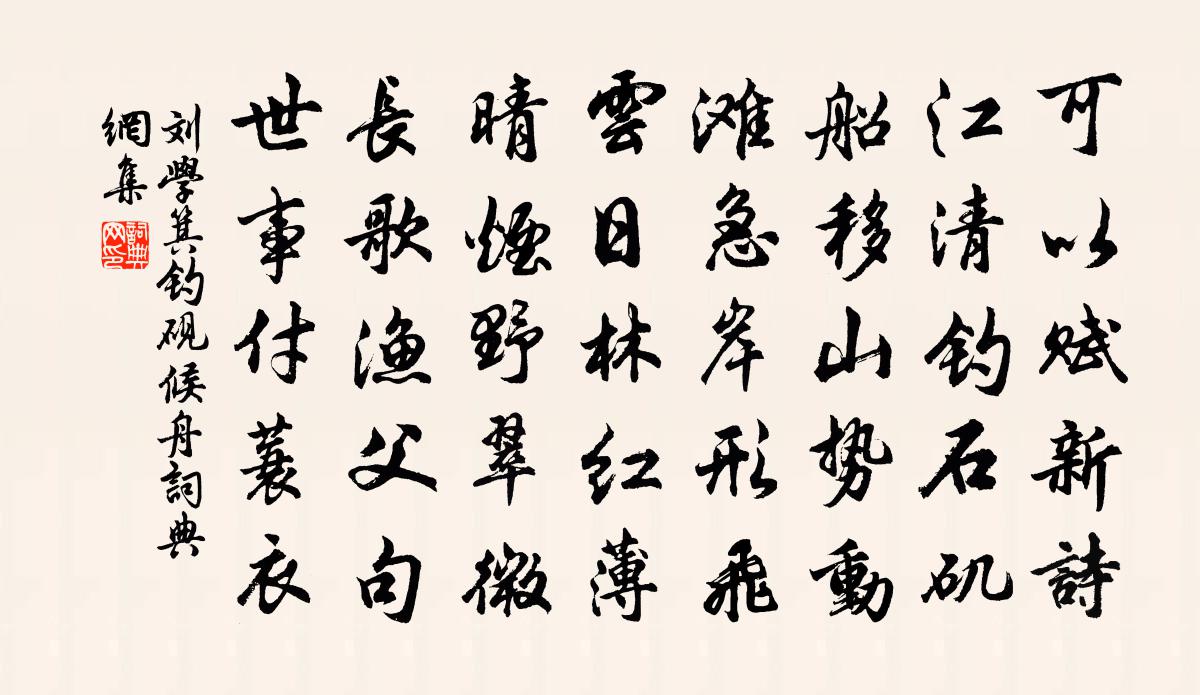 可以赋新詩
江清钓石矶
船移山势動
滩急岸形飛
雲日林红薄
晴煙野翠微
長歌渔父句
世事付蓑衣
刘學箕钓砚候舟詞典
網集
詞典
网印